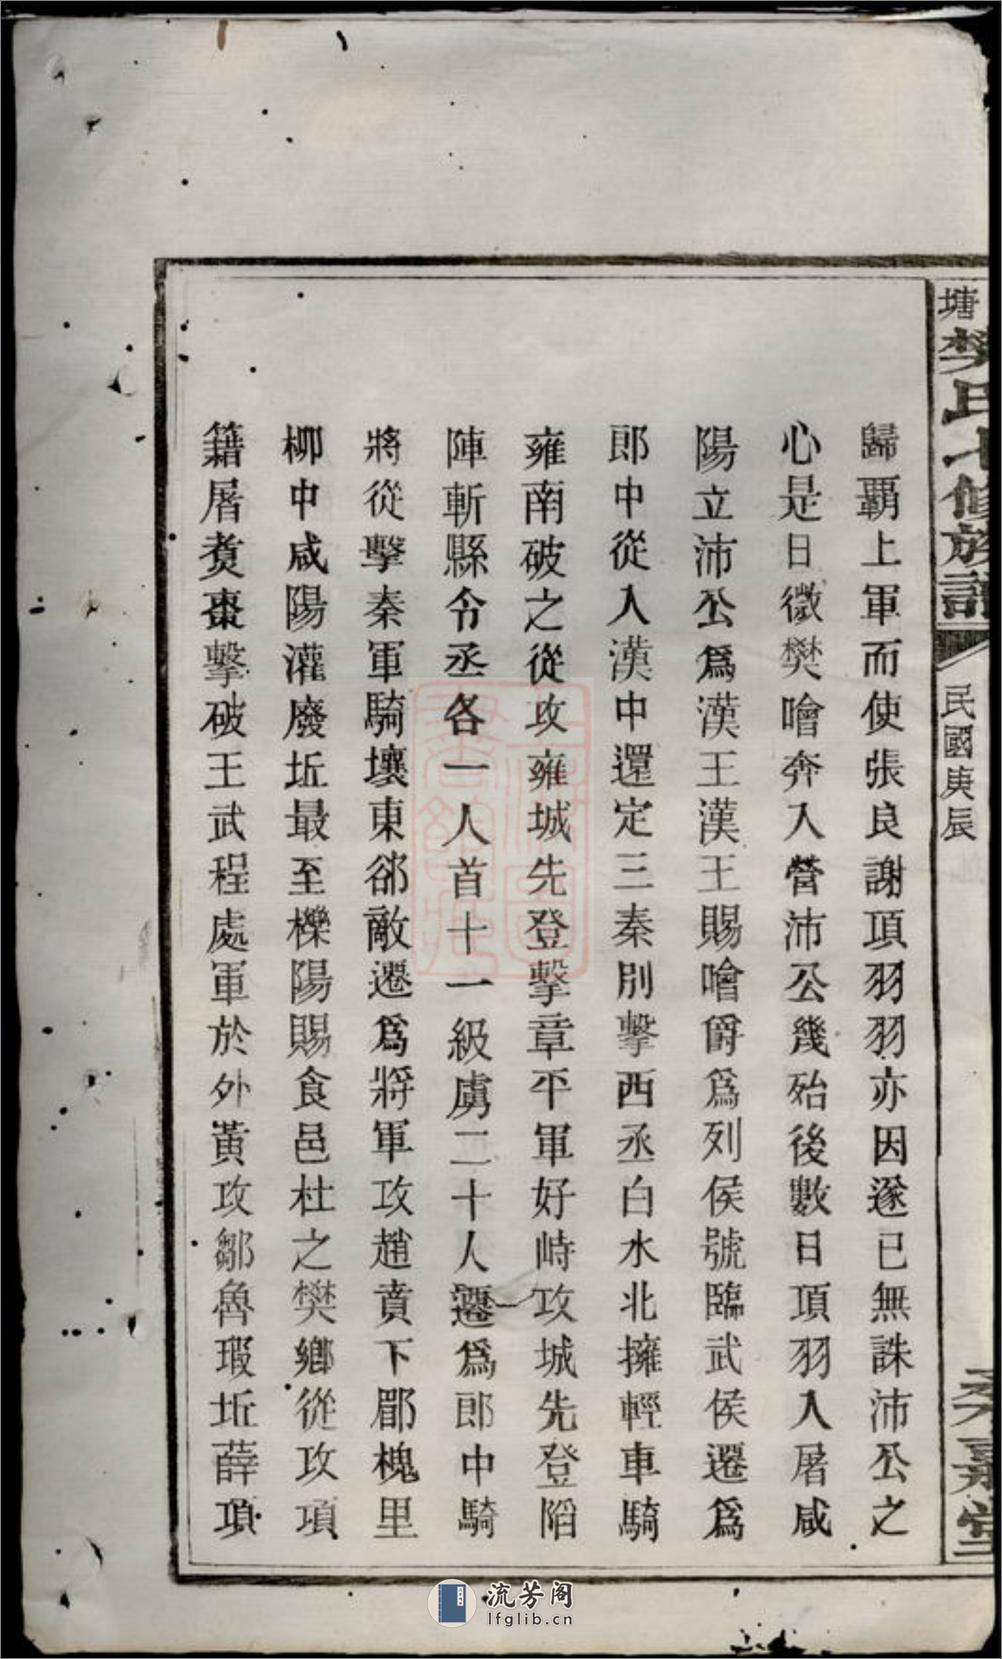 塘樊氏七修族譜
民國庚辰
嘉堂
歸覇上軍而使張良謝項羽羽亦因遂已無誅沛公之
心是日微樊噲奔入營沛公幾殆後數日項羽入屠咸
陽立沛公爲漢王漢王賜噲爵爲列侯號臨武侯遷爲
郎中從入漢中還定三秦別擊西丞白水北擁輕車騎
雍南破之從攻雍城先登擊章平軍好畤攻城先登陷
陣斬縣令丞各一人首十一級虜二十人遷爲郎中騎
將從擊秦軍騎壤東郤敵遷爲將軍攻趙賁下郿槐里
柳中咸陽灌廢坵最至櫟陽賜食邑杜之樊鄉從攻項
籍屠煑棗擊破王武程處軍於外黃攻鄒魯瑕坵薛項
流芳阁
lfglib.cn